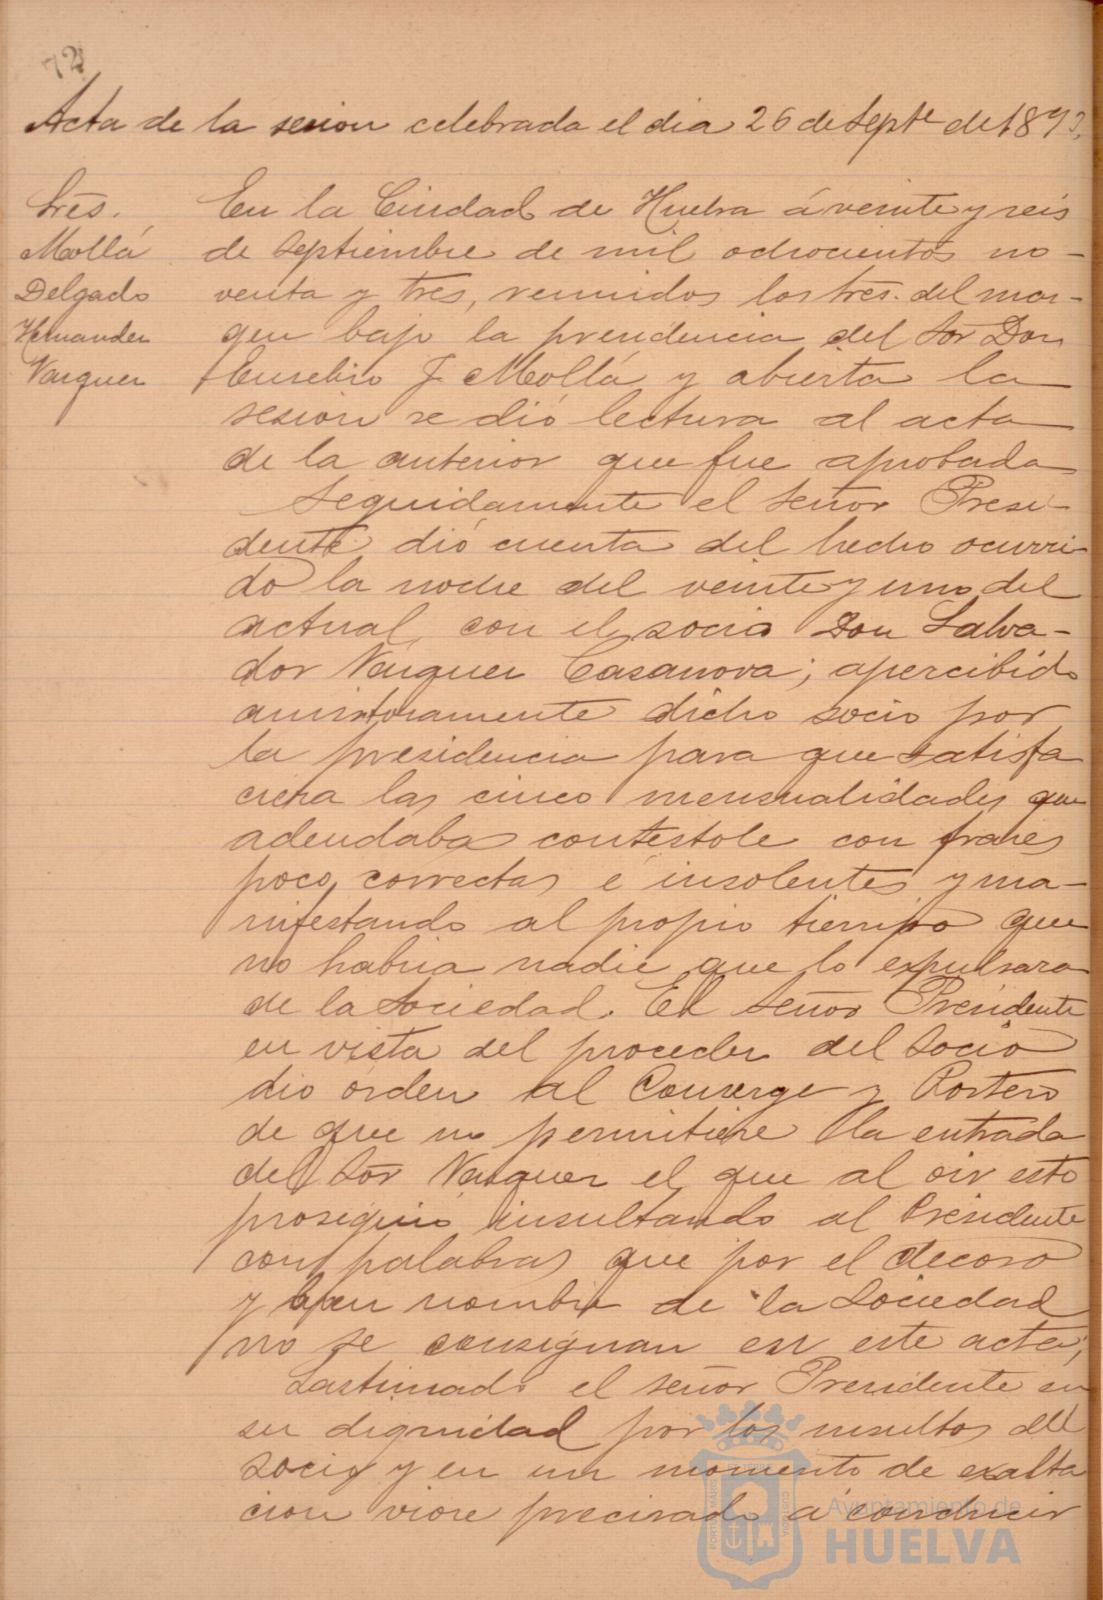 72
Acta de la sesion celebrada el dia 26 de Septe de 1893.
Sres.
Mollá
Delgado
Hernandez
Vazquez
En la Ciudad de Huelva á veinte y seis
de Septiembre de mil ochocientos no-
venta y tres, reunidos los Sres. del mar-
gen bajo la presidencia del Sor Don
Eusebio J. Mollá y abierta la
sesion se dió lectura al acta
de la anterior que fue aprobada
Seguidamente el Señor Presi-
dente dió cuenta del hecho ocurri-
do la noche del veinte y uno del
actual, con el socio Don Salva-
dor Vazquez Casanova; apercibido
amistosamente dicho socio por
la presidencia para que satisfa
ciera las cinco mensualidades que
adeudaba contestole con frases
poco correctas é insolentes y ma-
nifestando al propio tiempo que
no habria nadie que lo expulsara
de la Sociedad. El Señor Presidente
en vista del proceder del Socio
dio orden al Conserge y Portero
de que no permitiese la entrada
del Sor Vazquez el que al oir esto
prosiguió insultando al Presidente
con palabras que por el decoro
y buen nombre de la Sociedad
no se consignan en este acta;
Lastimado el señor Presidente en
su dignidad por los insultos del
Socio y en un momento de exalta
cion viose precisado á conducir
Ayuntamiento de
HUELVA